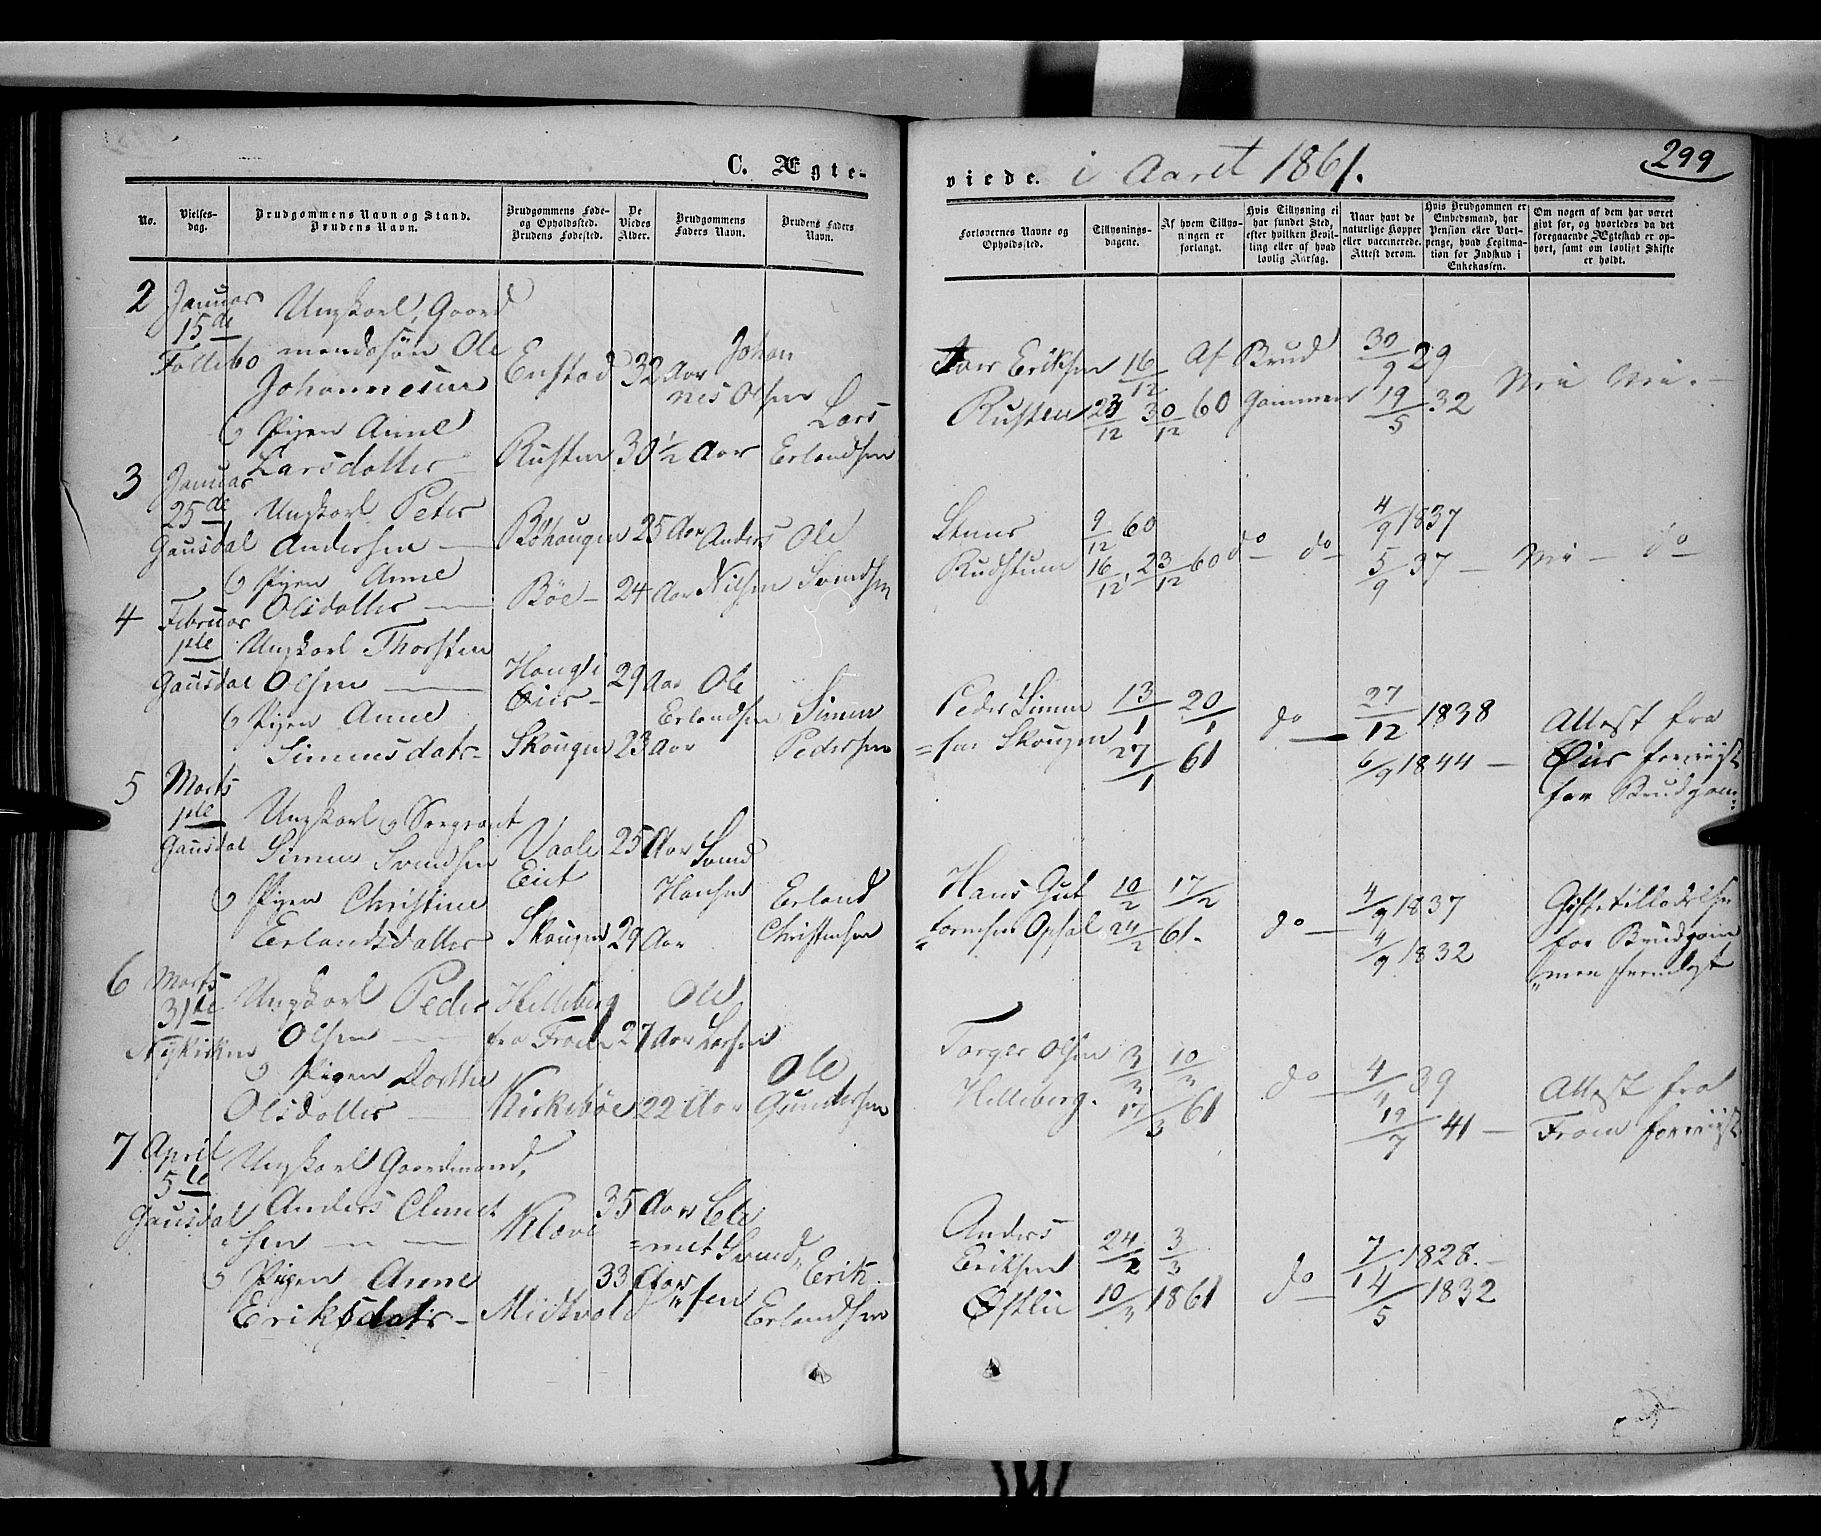 299
C. Ægte-
viede. i Aaret 1861.
No.
Vielses-
dag.
Brudgommens Navn og Stand.
Brudens Navn.
Brudgommens Føde-
og Opholdssted.
Brudens Fødested.
De
Viedes
Alder.
Brudgommens
Faders Navn.
Brudens Faders
Navn.
Forlovernes Navne og
Opholdssted.
Tillysnings-
dagene.
Af hvem Tillys-
ningen er
forlangt.
Hvis Tillysning ei
har fundet Sted,
efter hvilken Bevil-
ling eller af hvad
lovlig Aarsag.
Naar havt de
naturlige Kopper
eller vaccinerede.
Attest derom.
Hvis Brudgommen er
Embedsmand, har
Pension eller Vart-
penge, hvad Legitima-
tion for Indskud i
Enkekassen.
Om nogen af dem har været
givt før, og hvorledes da det
foregaaende Ægteskab er op-
hørt, samt om lovligt Skifte
er holdt.
2 Januar
15de
Follebo
Ungkarl, Gaard
mandssøn Ole
Johannesen
& Pigen Anne
Larsdatter
Enstad 32 Aar
Rusten 30½ Aar
Johan
nes Olsen
Lars
Erlandsen
Lars Eriksen
Rusten
16/12 23/12 30/12 60
Af Brud
gommen
30/9 29
19/5 32
Nei Nei. -
3 Januar
25de
Gausdal
Ungkarl Peter
Andersen
& Pigen Anne
Olsdatter
Bøhaugen 25 Aar
Bøe - 24 Aar
Anders
Nilsen
Ole
Svendsen
Rudstuen
9/12 60
16/12, 23/12 60
do do
4/9 1837
5/9 37 -
Nei - do
4 Februar
1ste
Gausdal
Ungkarl Thorsten
Olsen
& Pigen Anne
Simensdatr -
Øier - 29 Aar
Skougen 23 Aar
Ole
Erlandsen
Simen
Pedersen
Peder Simen
=sen Skougen
13/1 20/1
27/1 61
do
27/12 1838
6/9 1844 -
Attest fra
Øier foreviist
for Brudgom=
5 Marts
1ste
Gausdal
Ungkarl & Sergeant
Simen Svendsen
& Pigen Christine
Erlandsdatter
Vaale 25 Aar
Eiet
Skougen 29 Aar
Svend
Hansen
Erland
Christensen
Hans Gut
tormsen Opsal
10/2 17/2
24/2 61.
do
4/9 1837
4/9 1832
Giftetilladelse
for Brudgom
men fremlagt
6 Marts
31te
Nykirken
Ungkarl Peder
Olsen
& Pigen Dorthe
Olsdatter
Helleberg
fra Froen 27 Aar
Kirkebøe 22 Aar
Ole
Larsen
Ole
Gundersen
Torger Olsen
Helleberg.
3/3 10/3
17/3 61
do
4/4 39
19/7 41 -
Attest fra
Froen foreviist
7 April
5te
Gausdal
Ungkarl Gaardmand,
Anders Clemet
sen
& Pigen Anne
Eriksdatr -
Kløve 35 Aar
Midtvold 33 Aar
Cle
=met Svend,
sen
Erik
Erlandsen
Anders
Eriksen
Østlie
24/2 3/3
10/3 1861
do
7/1 1828. -
14/5 1832